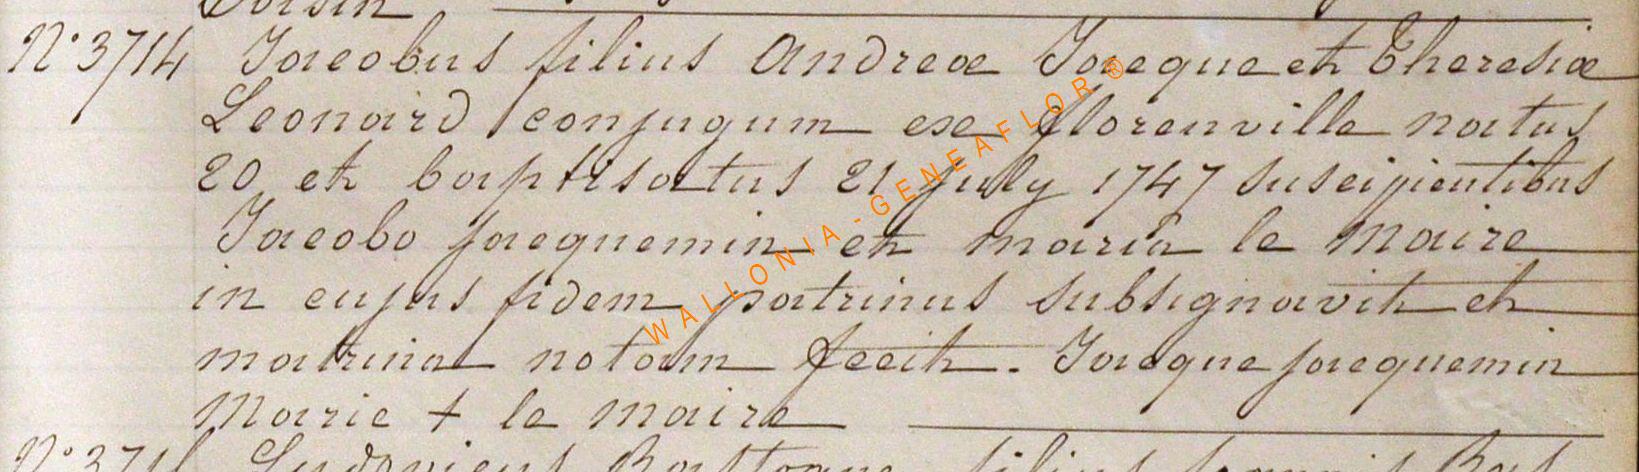 N° 3714 Jacobus filius Andreæ Jacque et Theresiæ
Leonard conjugum ex florenville natus
20 et baptisatus 21 july 1747 suscipientibus
Jacobo jacquemin et maria le maire
in cujus fidem patrinus subsignavit et
matrina notam fecit. Jacque jacquemin
Marie + le maire
Ludovicus Bastogne filius
WALLONIA-GENEAFLOR®